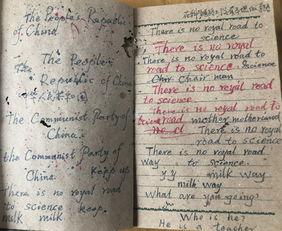 The People's Republic
of China
The People's
The Republic of China
The Communist Party of
China.
the Communist Party of
China. keep us
There is no royal road
to science keep.
milk milk
There is no royal road to
science
There is no royal
There is no royal road to
road to science. science
Chair Chair man
There is no royal road
to science.
There is no royal road to
road mother motherland
no, cl There is no royal
road to science
There is no royal road
way to science.
yy milk way
milk way
What are you going?
Who is he?
He is a teacher